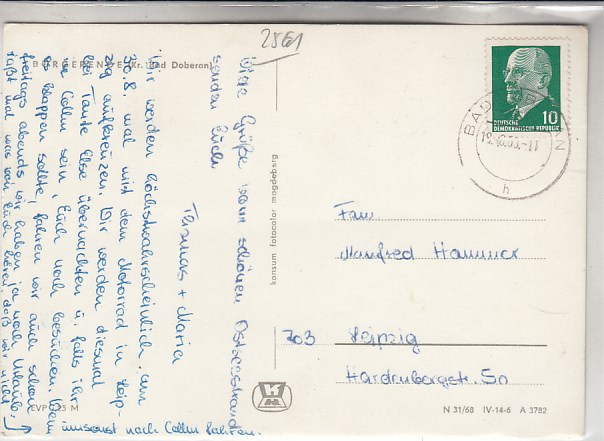 2561
BÖRGERENDE (Kr. Bad Doberan)
Viele Grüße vom schönen Ostseestrand
senden Euch
Thomas + Maria
Wir werden höchstwahrscheinlich am
30.8. mal mit dem Motorrad in Leip-
zig aufkreuzen. Wir werden diesmal
bei Tante Else übernachten u. falls ihr
in Collm sein, Euch noch besuchen. Wenn
es klappen sollte, fahren wir auch schon
freitags abends, wir haben ja noch Urlaub.
Laßt mal was von Euch hören, daß wir nicht
umsonst nach Collm fahren.
konsum fotocolor magdeburg
EVP 0,25 M
10
DEUTSCHE
DEMOKRATISCHE REPUBLIK
BAD DOBERAN
h
Fam
Manfred Hammer
703 Leipzig
Hardenbergstr. 50
N 31/68 IV-14-6 A 3782